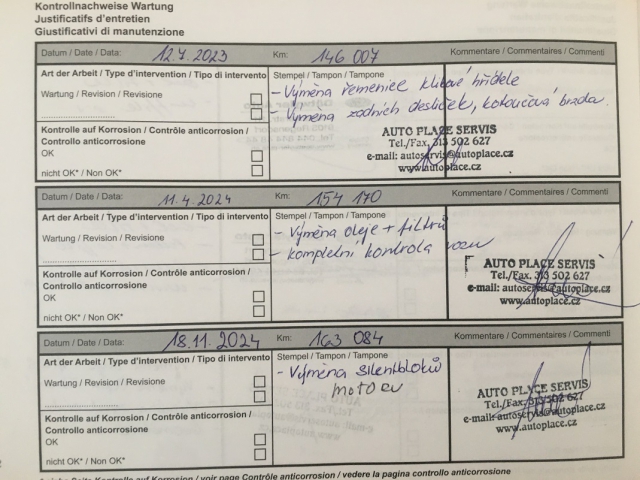 Kontrollnachweise Wartung
Justificatifs d'entretien
Giustificativi di manutenzione
Datum / Date / Data: 12.7.2023 Km: 146 007 Kommentare / Commentaires / Commenti
Art der Arbeit / Type d'intervention / Tipo di intervento Stempel / Tampon / Tampone
Wartung / Revision / Revisione - Výměna řemenice klikové hřídele
- Výměna zadních destiček, kotoučová brzda.
Kontrolle auf Korrosion / Contrôle anticorrosion / AUTO PLACE SERVIS
Controllo anticorrosione Tel./Fax. 313 502 627
OK e-mail: autoservis@autoplace.cz
nicht OK* / Non OK* www.autoplace.cz
Datum / Date / Data: 11.4.2024 Km: 154 170 Kommentare / Commentaires / Commenti
Art der Arbeit / Type d'intervention / Tipo di intervento Stempel / Tampon / Tampone
- Výměna oleje + filtrů
Wartung / Revision / Revisione - kompletní kontrola vozu
AUTO PLACE SERVIS
Kontrolle auf Korrosion / Contrôle anticorrosion / Tel./Fax. 313 502 627
Controllo anticorrosione e-mail: autoservis@autoplace.cz
OK www.autoplace.cz
nicht OK* / Non OK*
Datum / Date / Data: 18.11.2024 Km: 163 084 Kommentare / Commentaires / Commenti
Art der Arbeit / Type d'intervention / Tipo di intervento Stempel / Tampon / Tampone
- Výměna silentbloků
Wartung / Revision / Revisione motoru
AUTO PLACE SERVIS
Kontrolle auf Korrosion / Contrôle anticorrosion / Tel./Fax. 313 502 627
Controllo anticorrosione e-mail: autoservis@autoplace.cz
OK www.autoplace.cz
nicht OK* / Non OK*
Kontrolle auf Korrosion / voir page Contrôle anticorrosion / vedere la pagina controllo anticorrosione